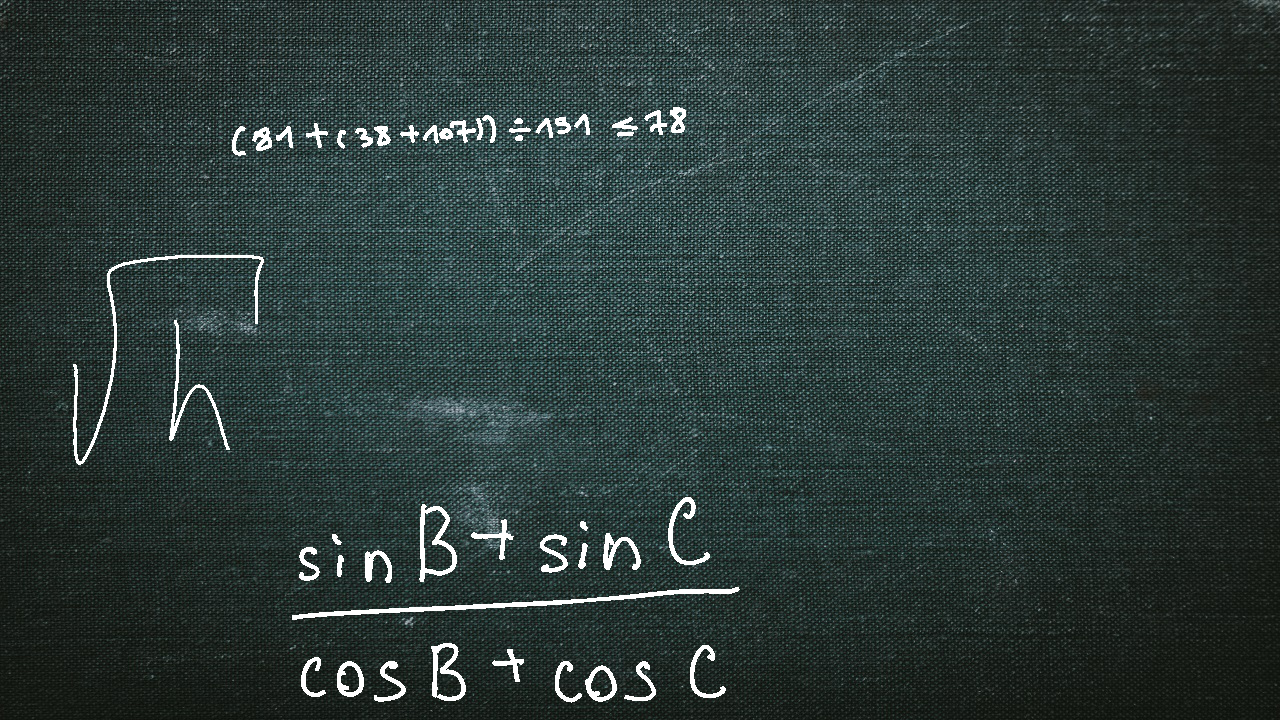 (81+(38+107))÷151 ≤78
√h
sin B + sin C
cos B + cos C